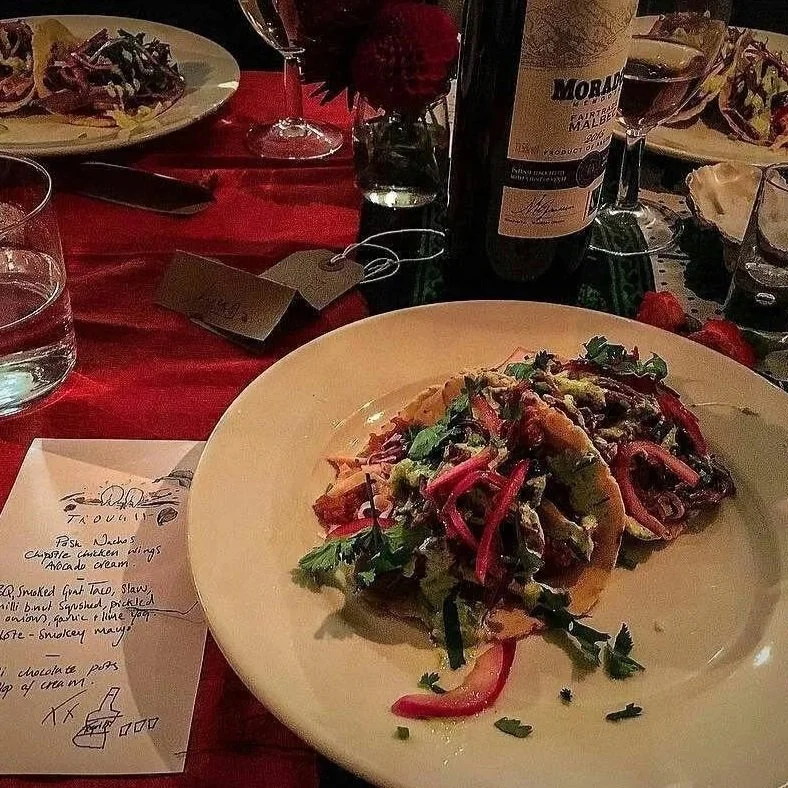 MORAD
FAIRTRADE
MALBEC
PRODUCT OF
TROUGH
Posh Nachos
Chipotle chicken wings
Avocado cream.
BQ Smoked Goat Taco, Slaw,
illi b'nut Squshed, pickled
onions, garlic + lime yog.
lote - Smokey mayo
i chocolate pots
llop of cream.
XX